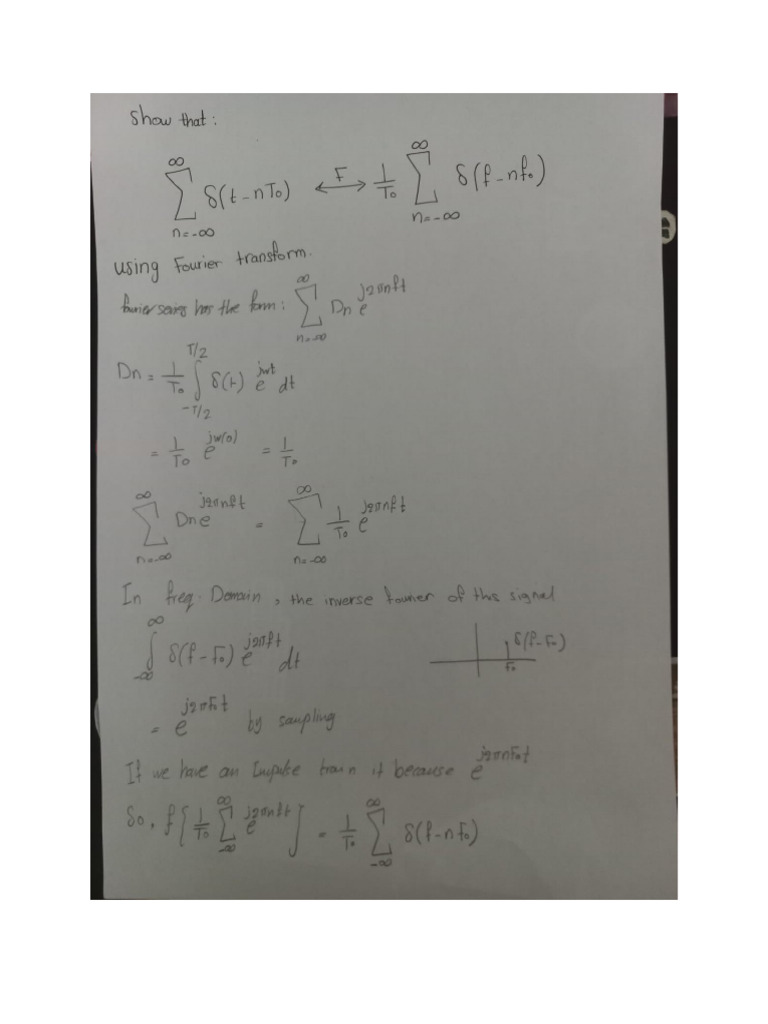 Show that:
∞ ∑ n=-∞ δ(t-nT₀) ⟷F 1/T₀ ∞ ∑ n=-∞ δ(f-nf₀)
using Fourier transform.
fourier series has the form: ∞ ∑ n=-∞ Dn e^{j2πnft}
Dn = 1/T₀ ∫_{-T/2}^{T/2} δ(t) e^{jwt} dt
= 1/T₀ e^{jw(0)} = 1/T₀
∞ ∑ n=-∞ Dn e^{j2πnft} = ∞ ∑ n=-∞ 1/T₀ e^{j2πnft}
In freq-Domain, the inverse fourier of this signal
∫_{-∞}^{∞} δ(f-F₀) e^{j2πft} dt
δ(f-F₀)
F₀
= e^{j2πF₀t} by sampling
If we have an Impulse train it because e^{j2πnF₀t}
So, f[1/T₀ ∞ ∑ -∞ e^{j2πnft}] = 1/T₀ ∞ ∑ -∞ δ(f-nf₀)